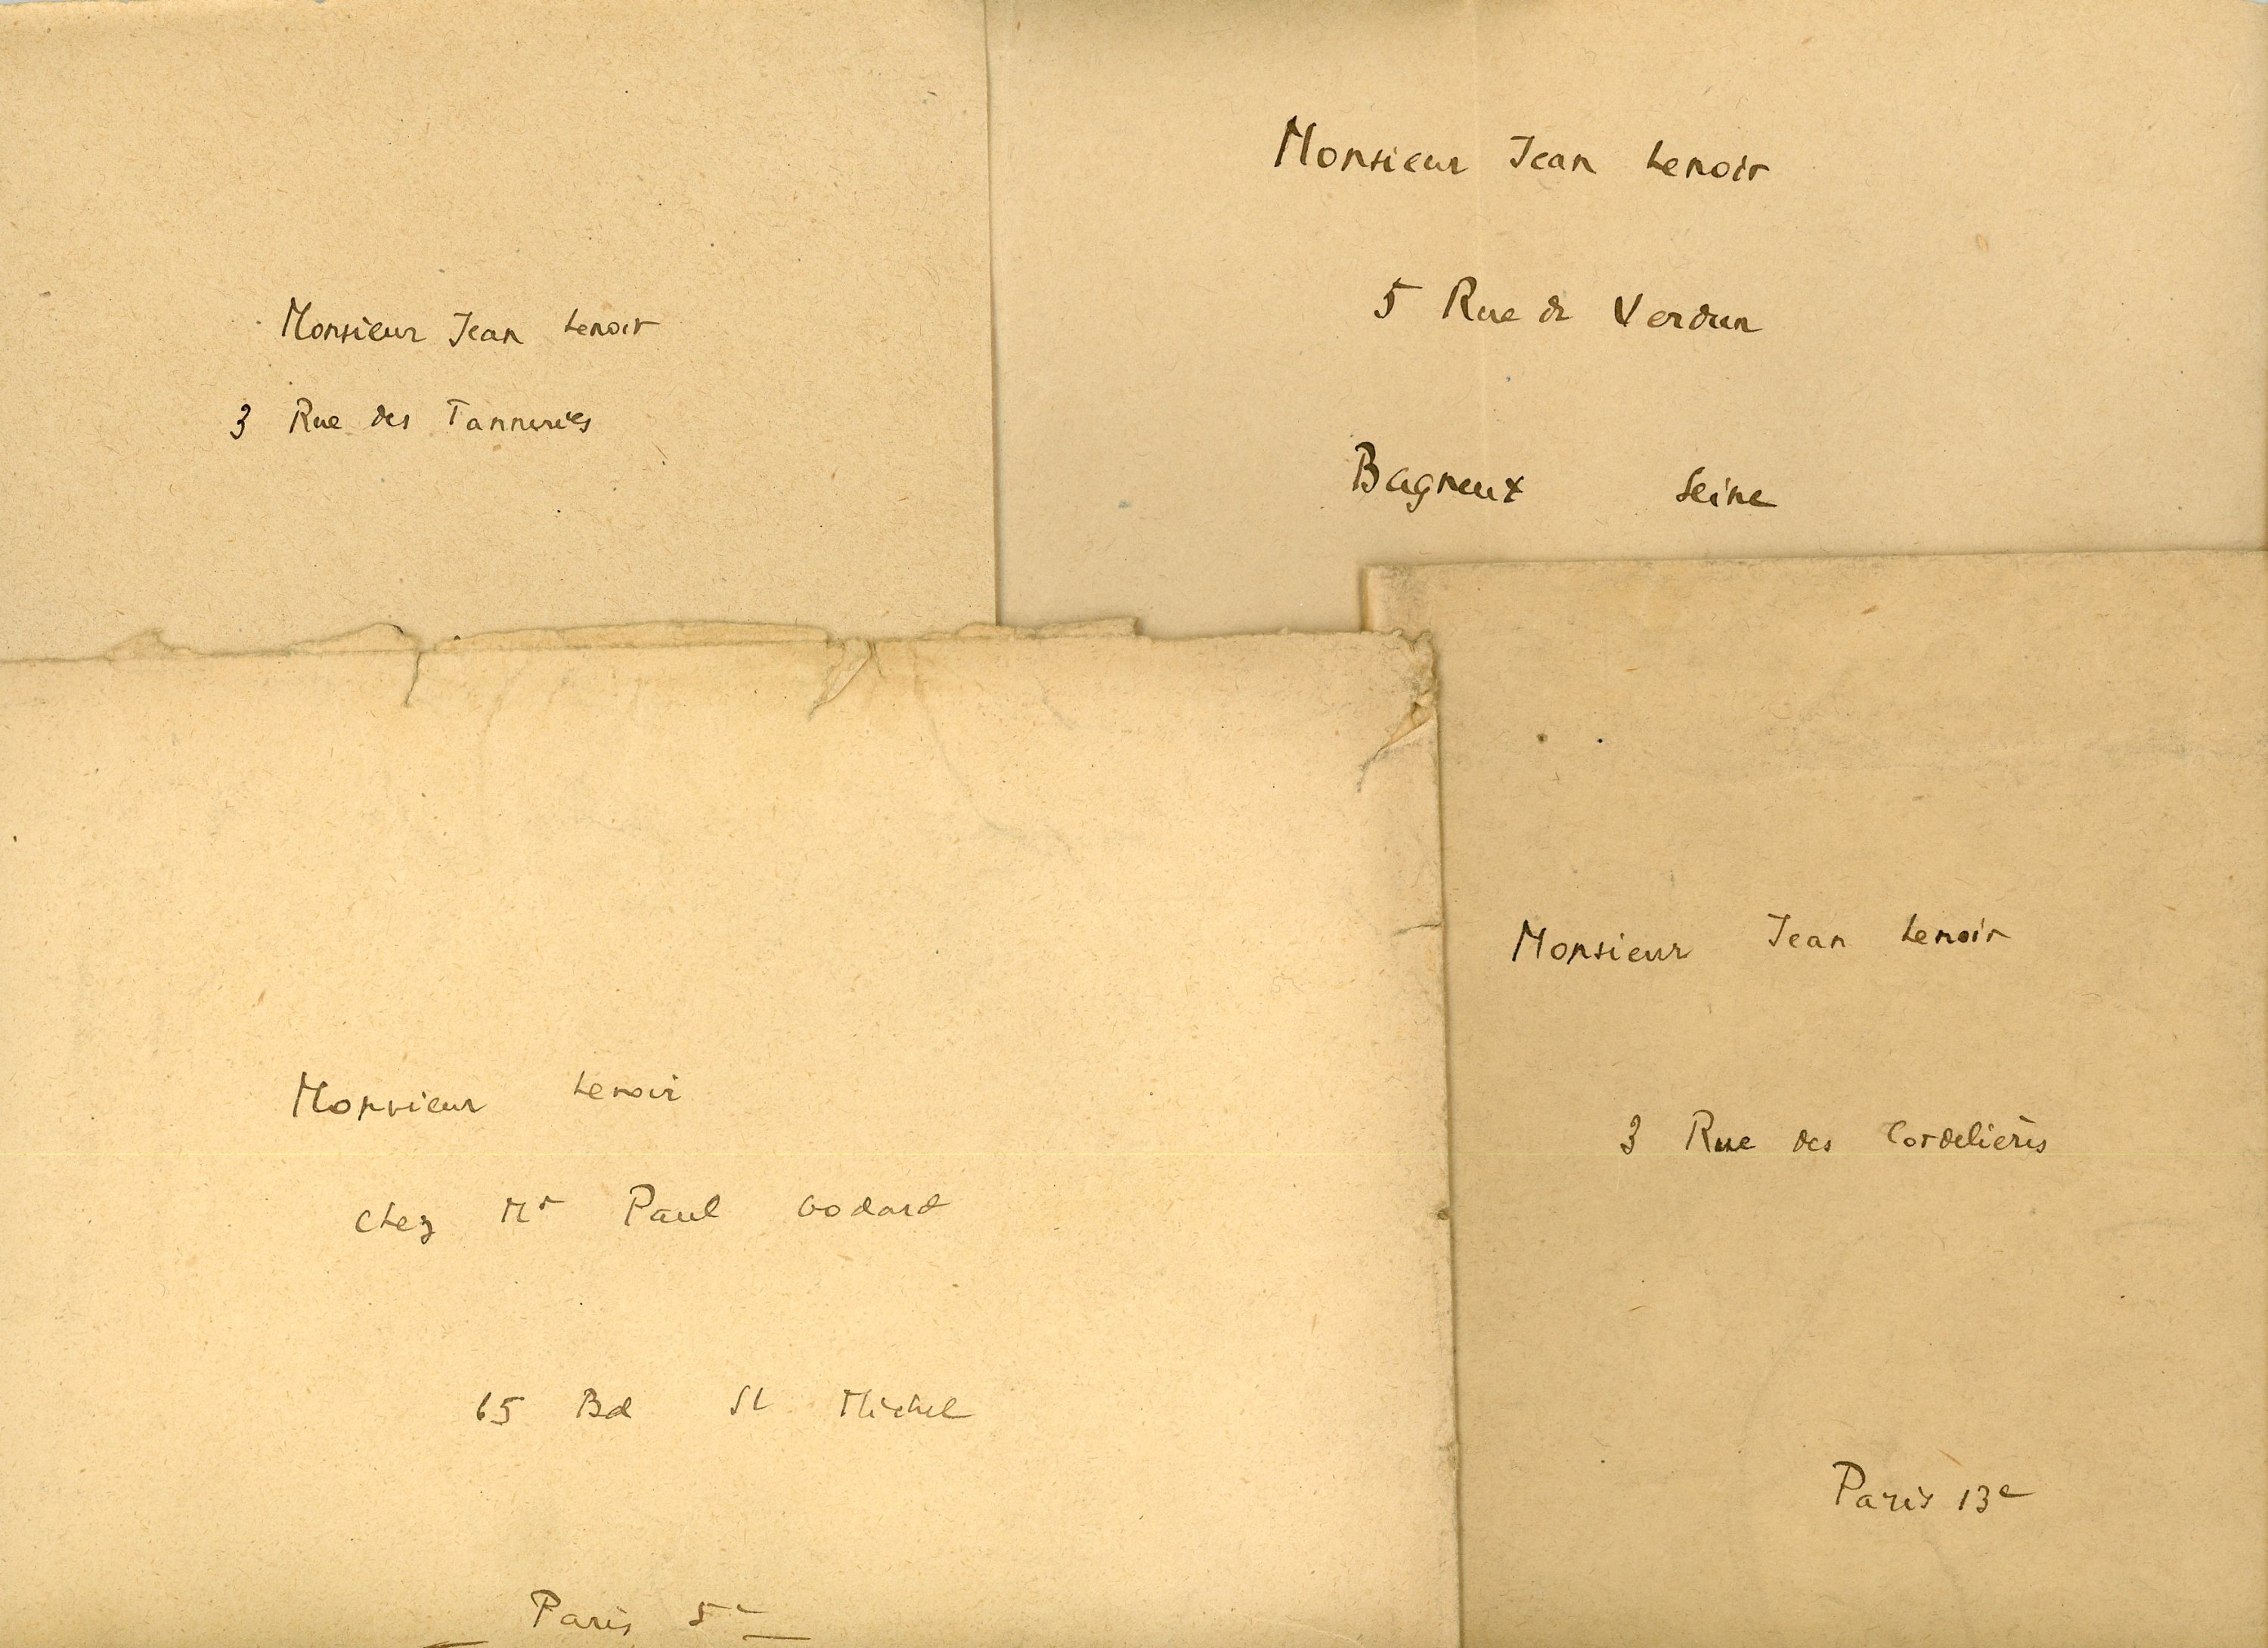 Monsieur Jean Lenoir
3 Rue des Tanneries
Monsieur Jean Lenoir
5 Rue de Verdun
Bagneux Seine
Monsieur Lenoir
chez Mr Paul Godard
65 Bd St Michel
Paris 5e
Monsieur Jean Lenoir
3 Rue des Cordelières
Paris 13e